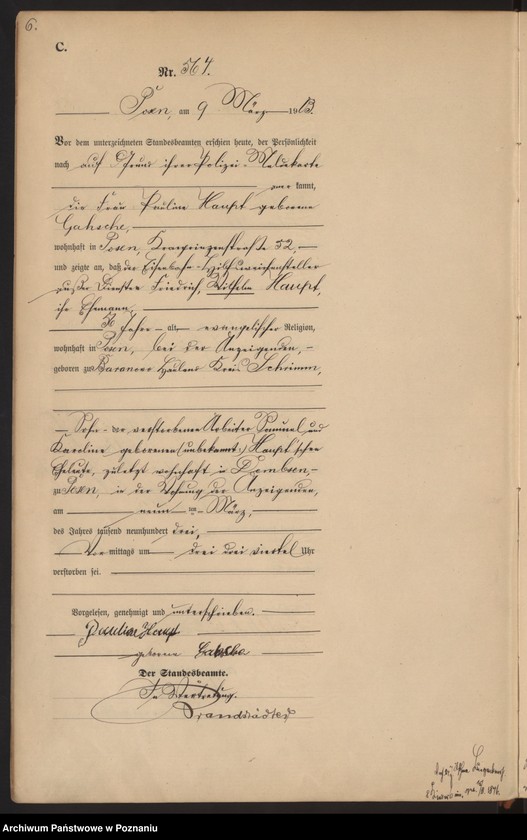 6.
C.
Nr. 564.
Posen, am 9 März 1903.
Vor dem unterzeichneten Standesbeamten erschien heute, der Persönlichkeit
nach auf Grund ihrer Polizei-Meldekarte
anerkannt,
die Frau Pauline Haupt geborene
Gahsche,
wohnhaft in Posen, Kronprinzenstraße 52,
und zeigte an, daß der Eisenbahn-Hilfsweichensteller
außer Dienste Friedrich, Wilhelm Haupt,
ihr Ehemann,
Jahre alt, evangelischer Religion,
wohnhaft in Posen, bei der Anzeigenden,
geboren zu Baranowo Hauland Kreis Schrimm,
Sohn der verstorbenen Arbeiter Samuel und
Karoline geborenen (unbekannt:) Haupt'schen
Eheleute, zuletzt wohnhaft in Dembsen,
zu Posen, in der Wohnung der Anzeigenden,
am neunten März,
des Jahres tausend neunhundert drei,
Vormittags um drei drei viertel Uhr
verstorben sei.
Vorgelesen, genehmigt und unterschrieben.
Pauline Haupt
geborene Gahsche
Der Standesbeamte.
In Vertretung.
Brandstädter
Archiwum Państwowe w Poznaniu